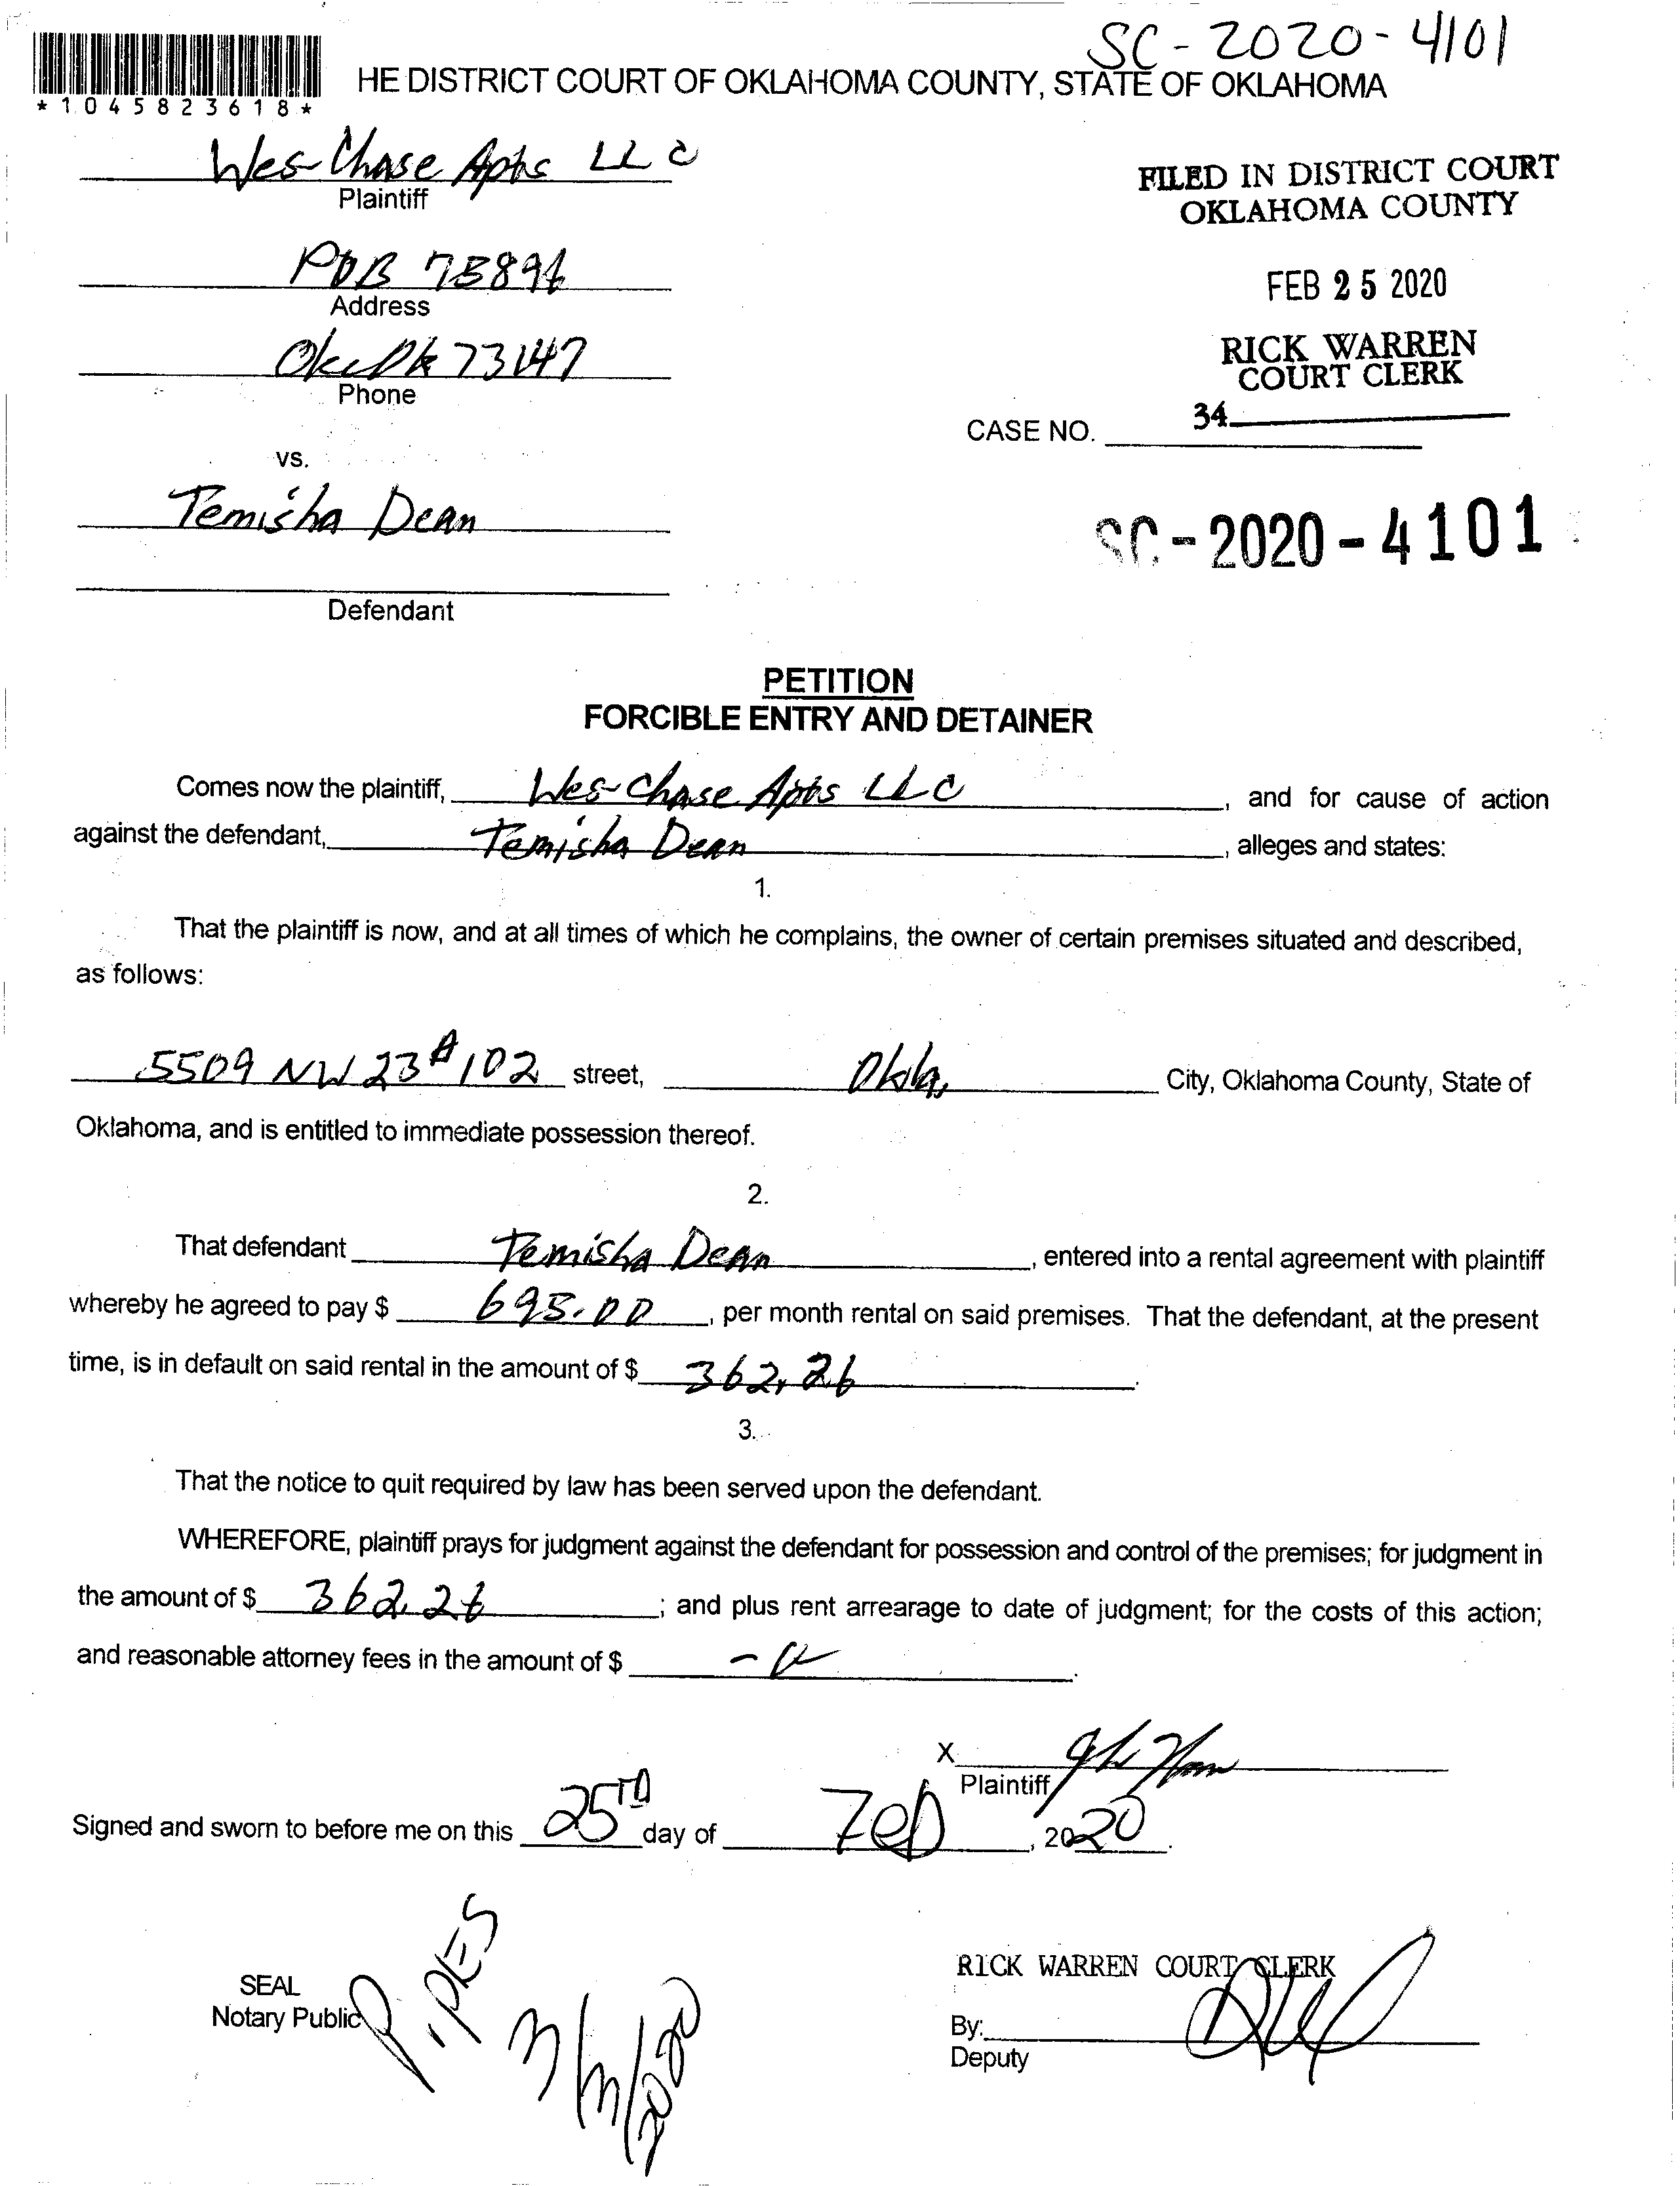 SC-2020-4101
*1045823618*
HE DISTRICT COURT OF OKLAHOMA COUNTY, STATE OF OKLAHOMA
Wes-Chase Apts LLC
Plaintiff
FILED IN DISTRICT COURT
OKLAHOMA COUNTY
POB 75896
Address
FEB 25 2020
RICK WARREN
COURT CLERK
Okc Ok 73147
Phone
34
CASE NO.
vs.
Temisha Dean
SC-2020-4101
Defendant
PETITION
FORCIBLE ENTRY AND DETAINER
Comes now the plaintiff, Wes-Chase Apts LLC, and for cause of action
against the defendant, Temisha Dean, alleges and states:
1.
That the plaintiff is now, and at all times of which he complains, the owner of certain premises situated and described,
as follows:
5509 NW 23 #102 street, Okla, City, Oklahoma County, State of
Oklahoma, and is entitled to immediate possession thereof.
2.
That defendant Temisha Dean, entered into a rental agreement with plaintiff
whereby he agreed to pay $ 695.00, per month rental on said premises. That the defendant, at the present
time, is in default on said rental in the amount of $ 362.26.
3.
That the notice to quit required by law has been served upon the defendant.
WHEREFORE, plaintiff prays for judgment against the defendant for possession and control of the premises; for judgment in
the amount of $ 362.26; and plus rent arrearage to date of judgment; for the costs of this action;
and reasonable attorney fees in the amount of $
X
Plaintiff
Signed and sworn to before me on this 25TH day of Feb, 2020.
SEAL
Notary Public
PIPES
3/3/2020
RICK WARREN COURT CLERK
By:
Deputy